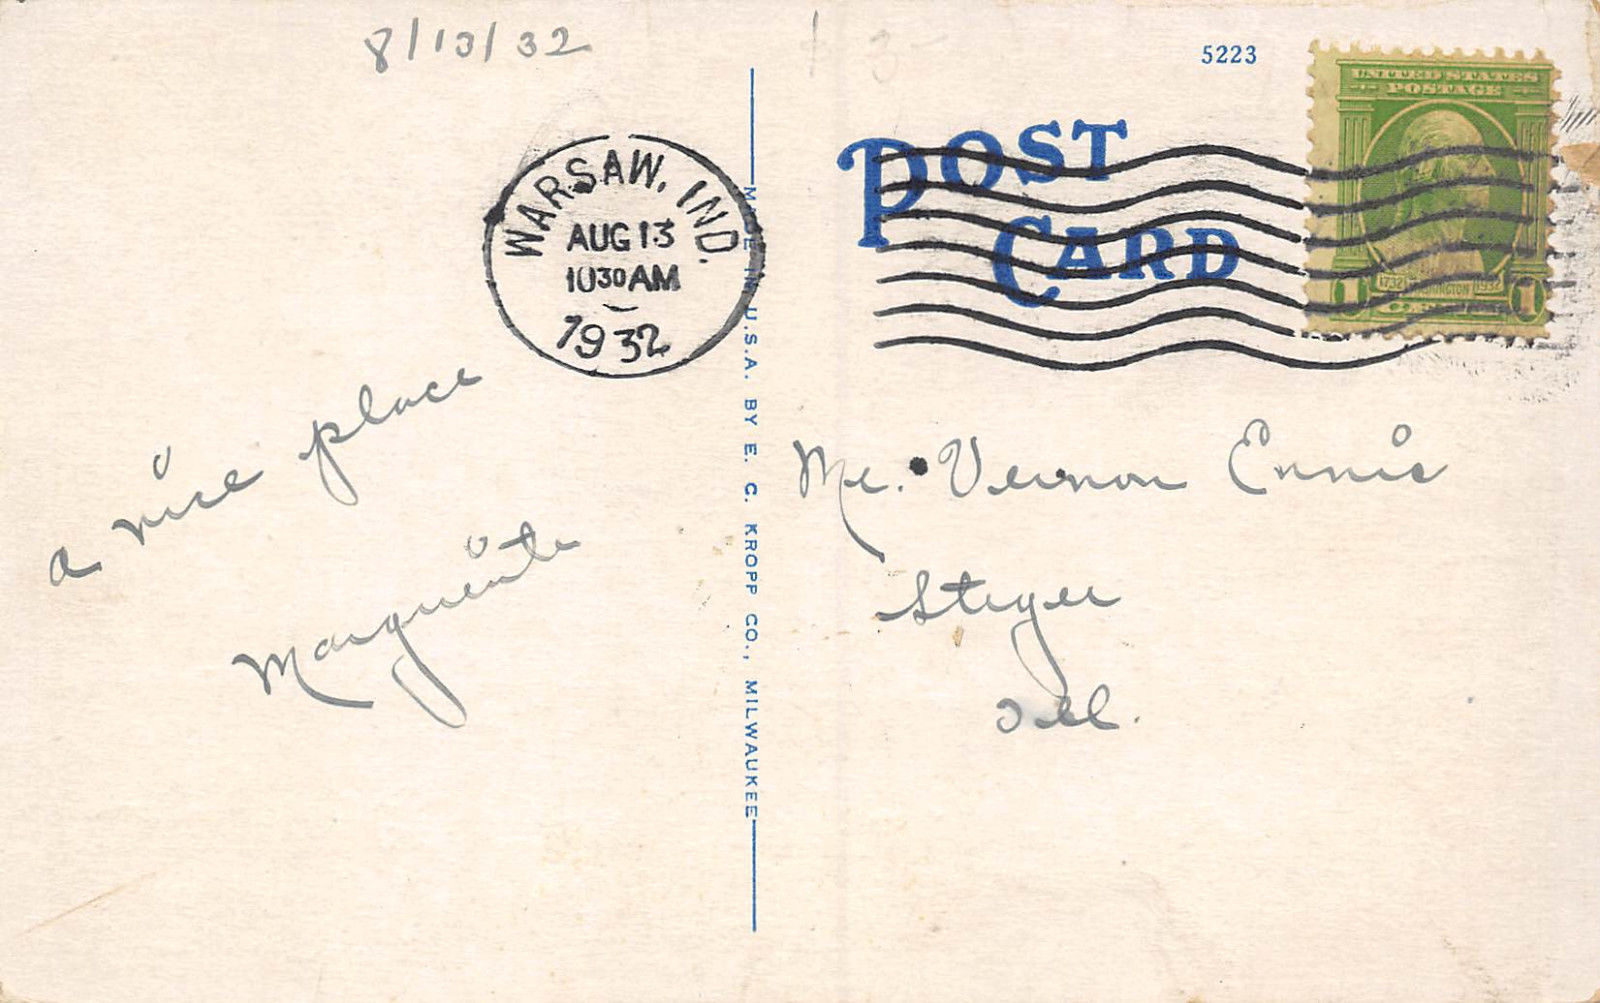 8/13/32
3-
5223
UNITED STATES
POSTAGE
1732 WASHINGTON 1932
1 CENT 1
POST
CARD
WARSAW, IND.
AUG 13
1030 AM
1932
MADE IN U.S.A. BY E. C. KROPP CO., MILWAUKEE
a nice place
Marguerite
Mr. Vernon Ennis
Steger
Ill.